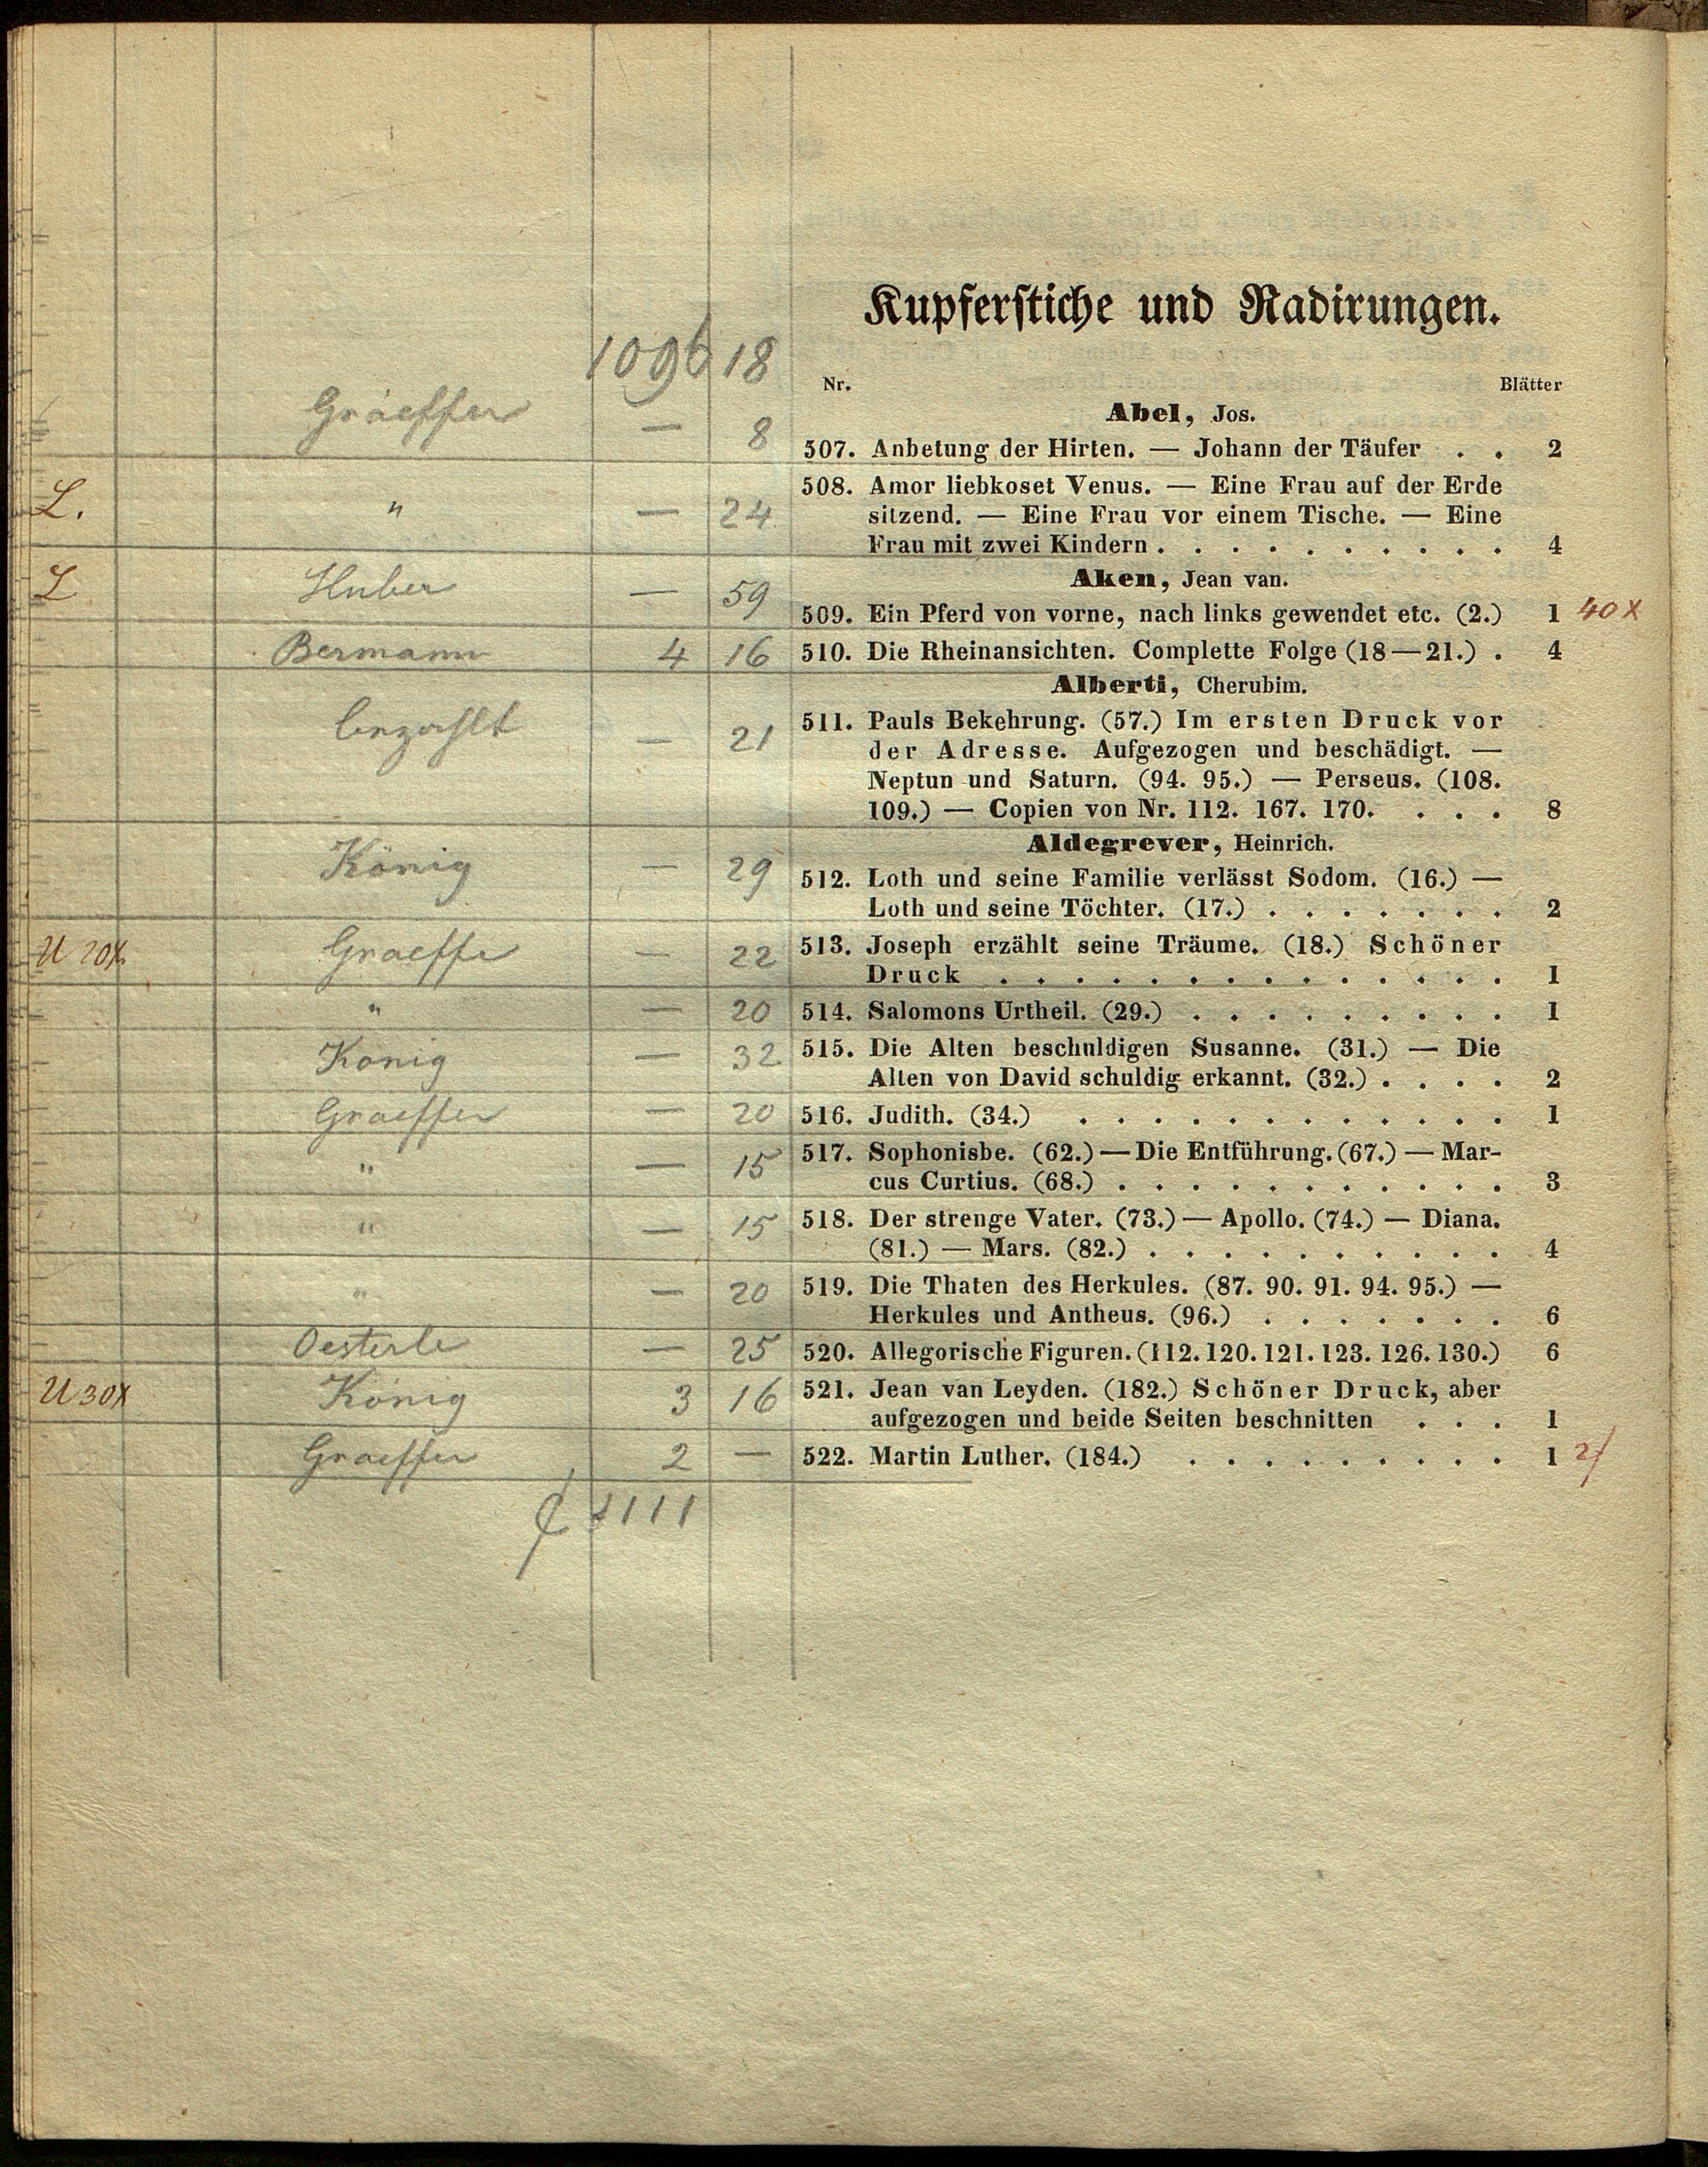 Kupferstiche und Radirungen.
1096 18
Nr. Blätter
Abel, Jos.
Graeffer — 8 507. Anbetung der Hirten. — Johann der Täufer . . 2
L. " — 24 508. Amor liebkoset Venus. — Eine Frau auf der Erde
sitzend. — Eine Frau vor einem Tische. — Eine
Frau mit zwei Kindern . . . . . . . . . . 4
Aken, Jean van.
L Huber — 59 509. Ein Pferd von vorne, nach links gewendet etc. (2.) 1 40 x
Bermann 4 16 510. Die Rheinansichten. Complette Folge (18—21.) . 4
Alberti, Cherubim.
bezahlt — 21 511. Pauls Bekehrung. (57.) Im ersten Druck vor
der Adresse. Aufgezogen und beschädigt. —
Neptun und Saturn. (94. 95.) — Perseus. (108.
109.) — Copien von Nr. 112. 167. 170. . . . 8
Aldegrever, Heinrich.
König — 29 512. Loth und seine Familie verlässt Sodom. (16.) —
Loth und seine Töchter. (17.) . . . . . . . 2
U 20x Graeffe — 22 513. Joseph erzählt seine Träume. (18.) Schöner
Druck . . . . . . . . . . . . . . 1
" — 20 514. Salomons Urtheil. (29.) . . . . . . . . . 1
König — 32 515. Die Alten beschuldigen Susanne. (31.) — Die
Alten von David schuldig erkannt. (32.) . . . . 2
Graeffer — 20 516. Judith. (34.) . . . . . . . . . . . . 1
" — 15 517. Sophonisbe. (62.) — Die Entführung. (67.) — Mar-
cus Curtius. (68.) . . . . . . . . . . . 3
" — 15 518. Der strenge Vater. (73.) — Apollo. (74.) — Diana.
(81.) — Mars. (82.) . . . . . . . . . . 4
" — 20 519. Die Thaten des Herkules. (87. 90. 91. 94. 95.) —
Herkules und Antheus. (96.) . . . . . . . 6
Oesterle — 25 520. Allegorische Figuren. (112. 120. 121. 123. 126. 130.) 6
U 30x König 3 16 521. Jean van Leyden. (182.) Schöner Druck, aber
aufgezogen und beide Seiten beschnitten . . . 1
Graeffer 2 — 522. Martin Luther. (184.) . . . . . . . . . 1 2f
1111